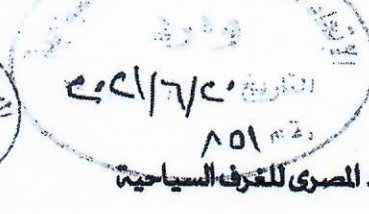 وارد
التاريخ ٢٠٢١/٦/٢٠
رقم ٨٥١
المصرى للغرف السياحية